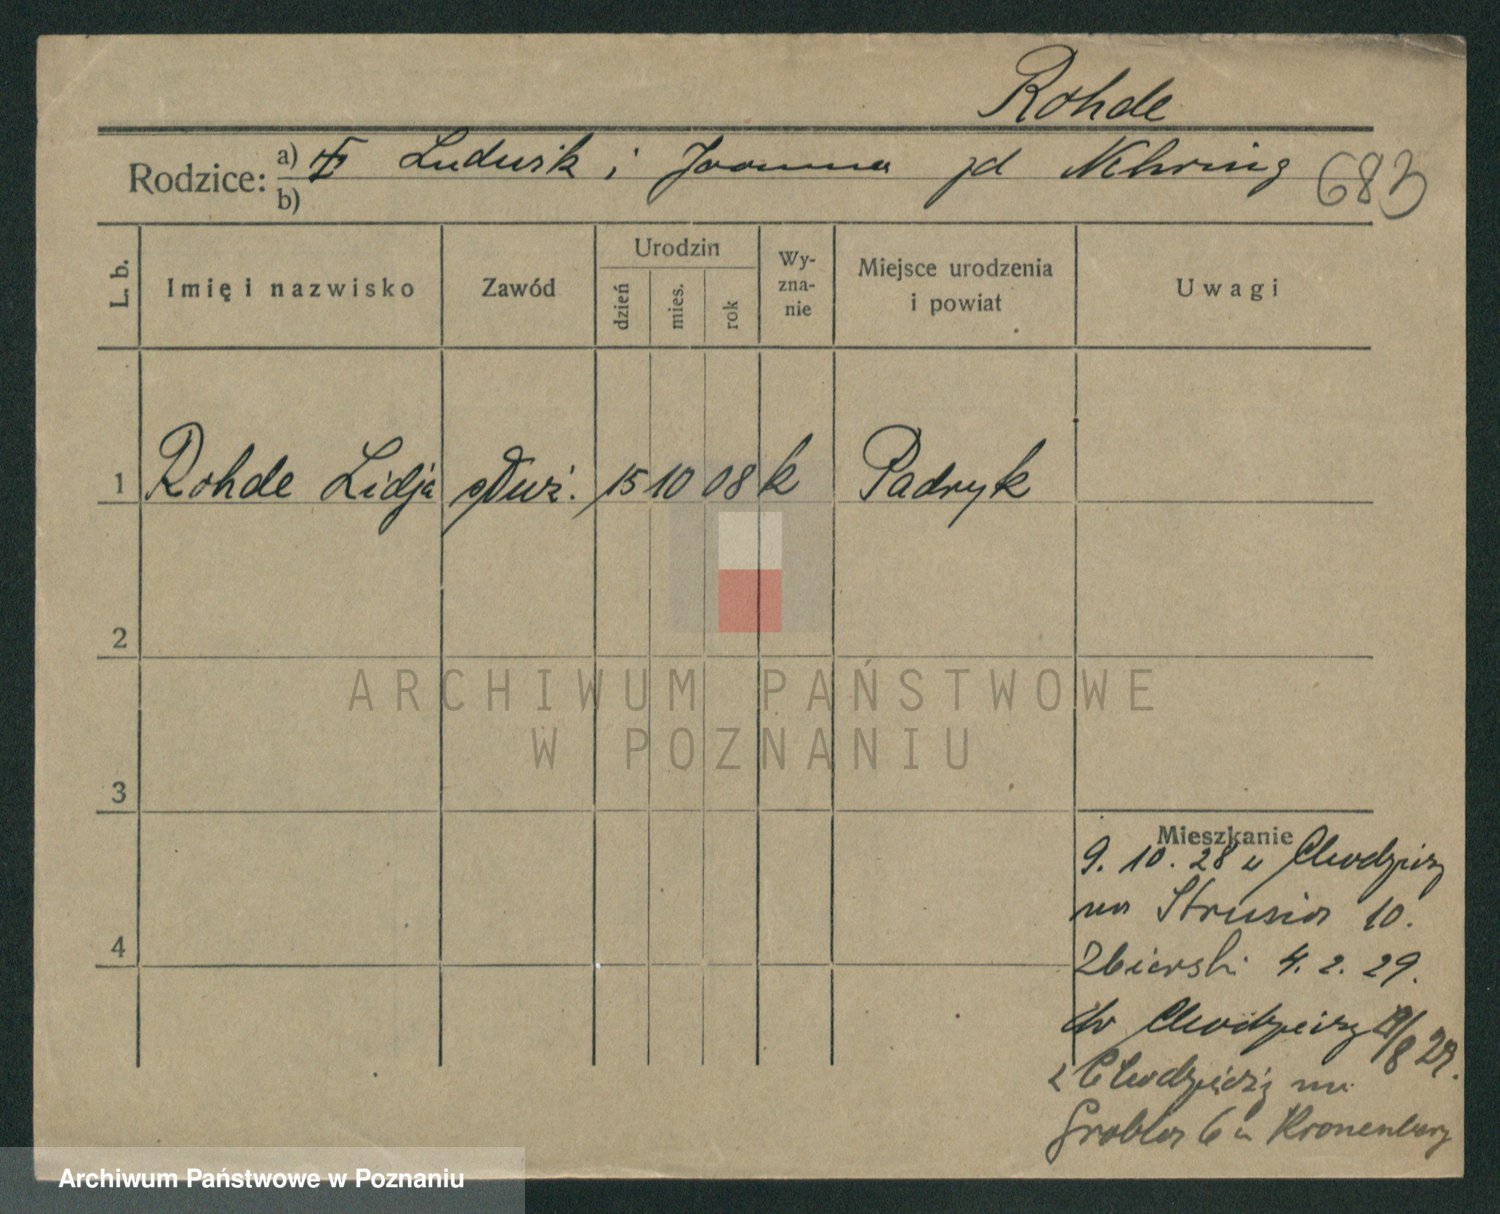 Rohde
Rodzice: a) Ludwik i Joanna zd Nehring 683
b)
L. b. Imię i nazwisko Zawód Urodzin dzień mies. rok Wyznanie Miejsce urodzenia i powiat Uwagi
1 Rohde Lidja służ. 15 10 08 k Padryk
2
3
4
Mieszkanie
9. 10. 28 z Chodzieży
na Strusia 10.
Zbierski 4. 2. 29.
do Chodzieży 8 29.
z Chodzieży na
Grobla 6 u Kronenberg
ARCHIWUM PAŃSTWOWE
W POZNANIU
Archiwum Państwowe w Poznaniu